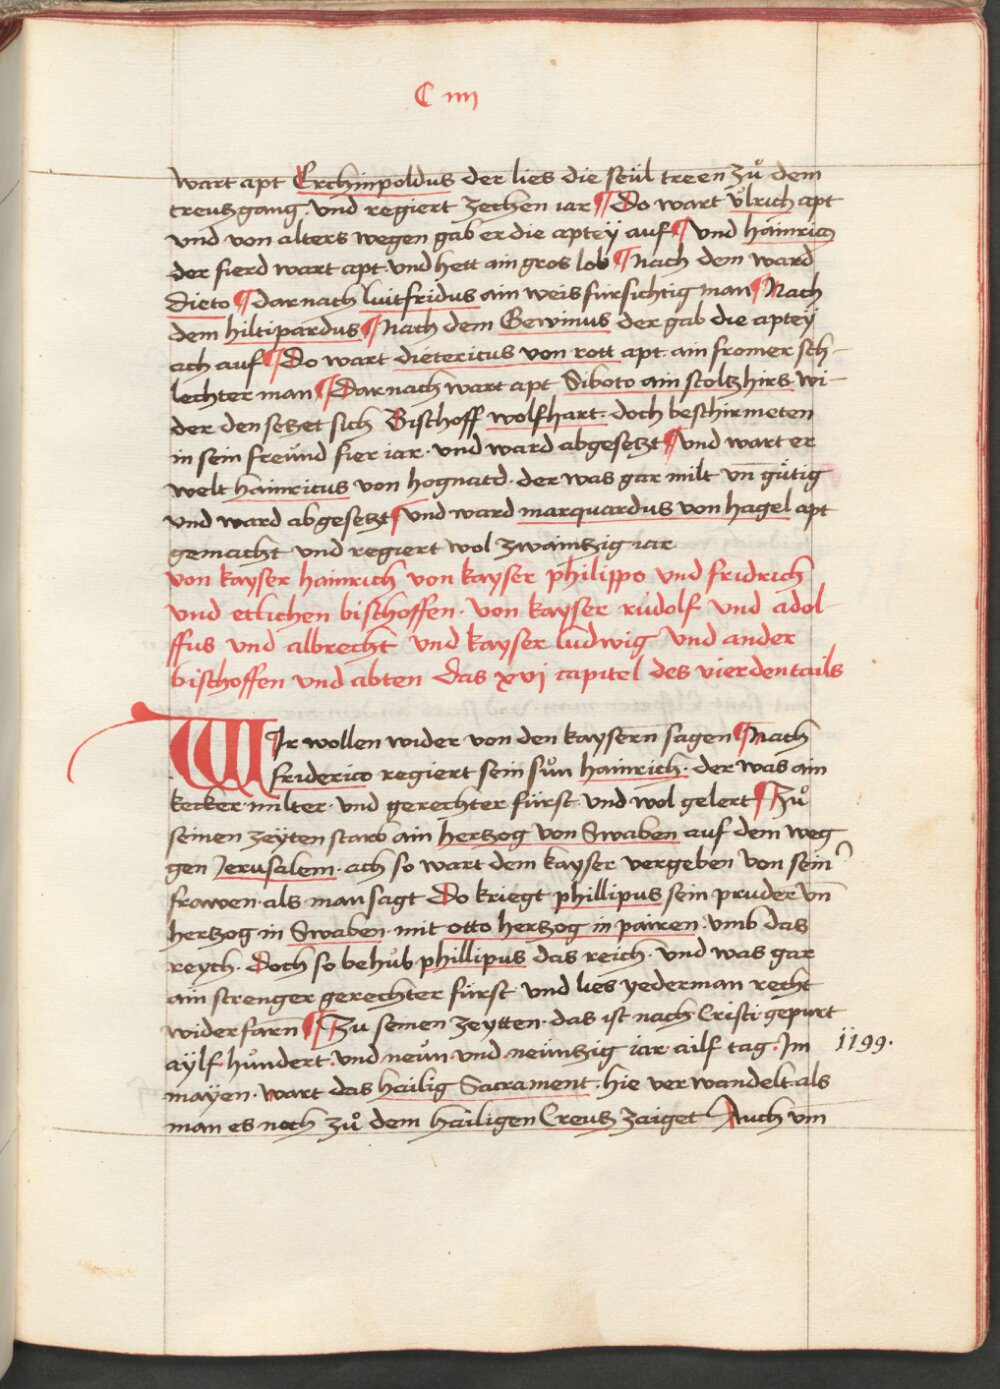 C iiij
wart apt Erchinpoldus der lies die seül treen zů dem
creutzgang · und regiert zechen iar ¶ Do wart Ůlrich apt
und von alters wegen gab er die aptey auf ¶ und hainrich
der fierd wart apt · und hett ain gros lob ¶ Nach dem ward
Dieto ¶ darnach luitfridus ain weis fürsichtig man ¶ Nach
dem hiltipardus ¶ Nach dem Gewinus der gab die aptey
ach auf ¶ Do wart dietericus von rott apt ain fromer sch-
lechter man ¶ Darnach wart apt Siboto ain stoltzhirs wi-
der den setzet sich Bischoff wolfhart · doch beschirmeten
in sein freünd fier iar · und ward abgesetzt ¶ und wart er
welt hainricus von hognatd · der was gar milt vn̄ gütig
und ward abgesetzt ¶ und ward marquardus von hagel apt
gemacht und regiert wol zwaintzig iar
von kayser hainrich von kayser philippo und fridrich
und etlichen bischoffen · von kayser růdolf und adol-
ffus und albrecht und kayser ludwig und ander
bischoffen und abten das xvj capitel des vierden tails
WIr wollen wider von den kaysern sagen ¶ Nach
friderico regiert sein sůn hainrich · der was ain
kecker milter · und gerechter fürst · und wol gelert ¶ Zů
seinen zeÿten starb ain hertzog von Swaben auf dem weg
gen Jerusalem · ach so wart dem kayser vergeben von sein̄
frawen · als man sagt Do kriegt phillipus sein pruder vn̄
hertzog in Swaben · mit otto hertzog in pairen · umb das
reych · Doch so behůb phillipus das reich · und was gar
ain strenger gerechter fürst · und lies yederman recht
widerfarn ¶ Zu seinen zeytten · das ist nach Cristi gepurt
aÿlf hundert · und neün · und neüntzig iar · ailf tag · Im 1199 ·
mayen · wart das heilig Sacrament · hie verwandelt · als
man es noch zů dem hailigen Creutz zaiget Auch um